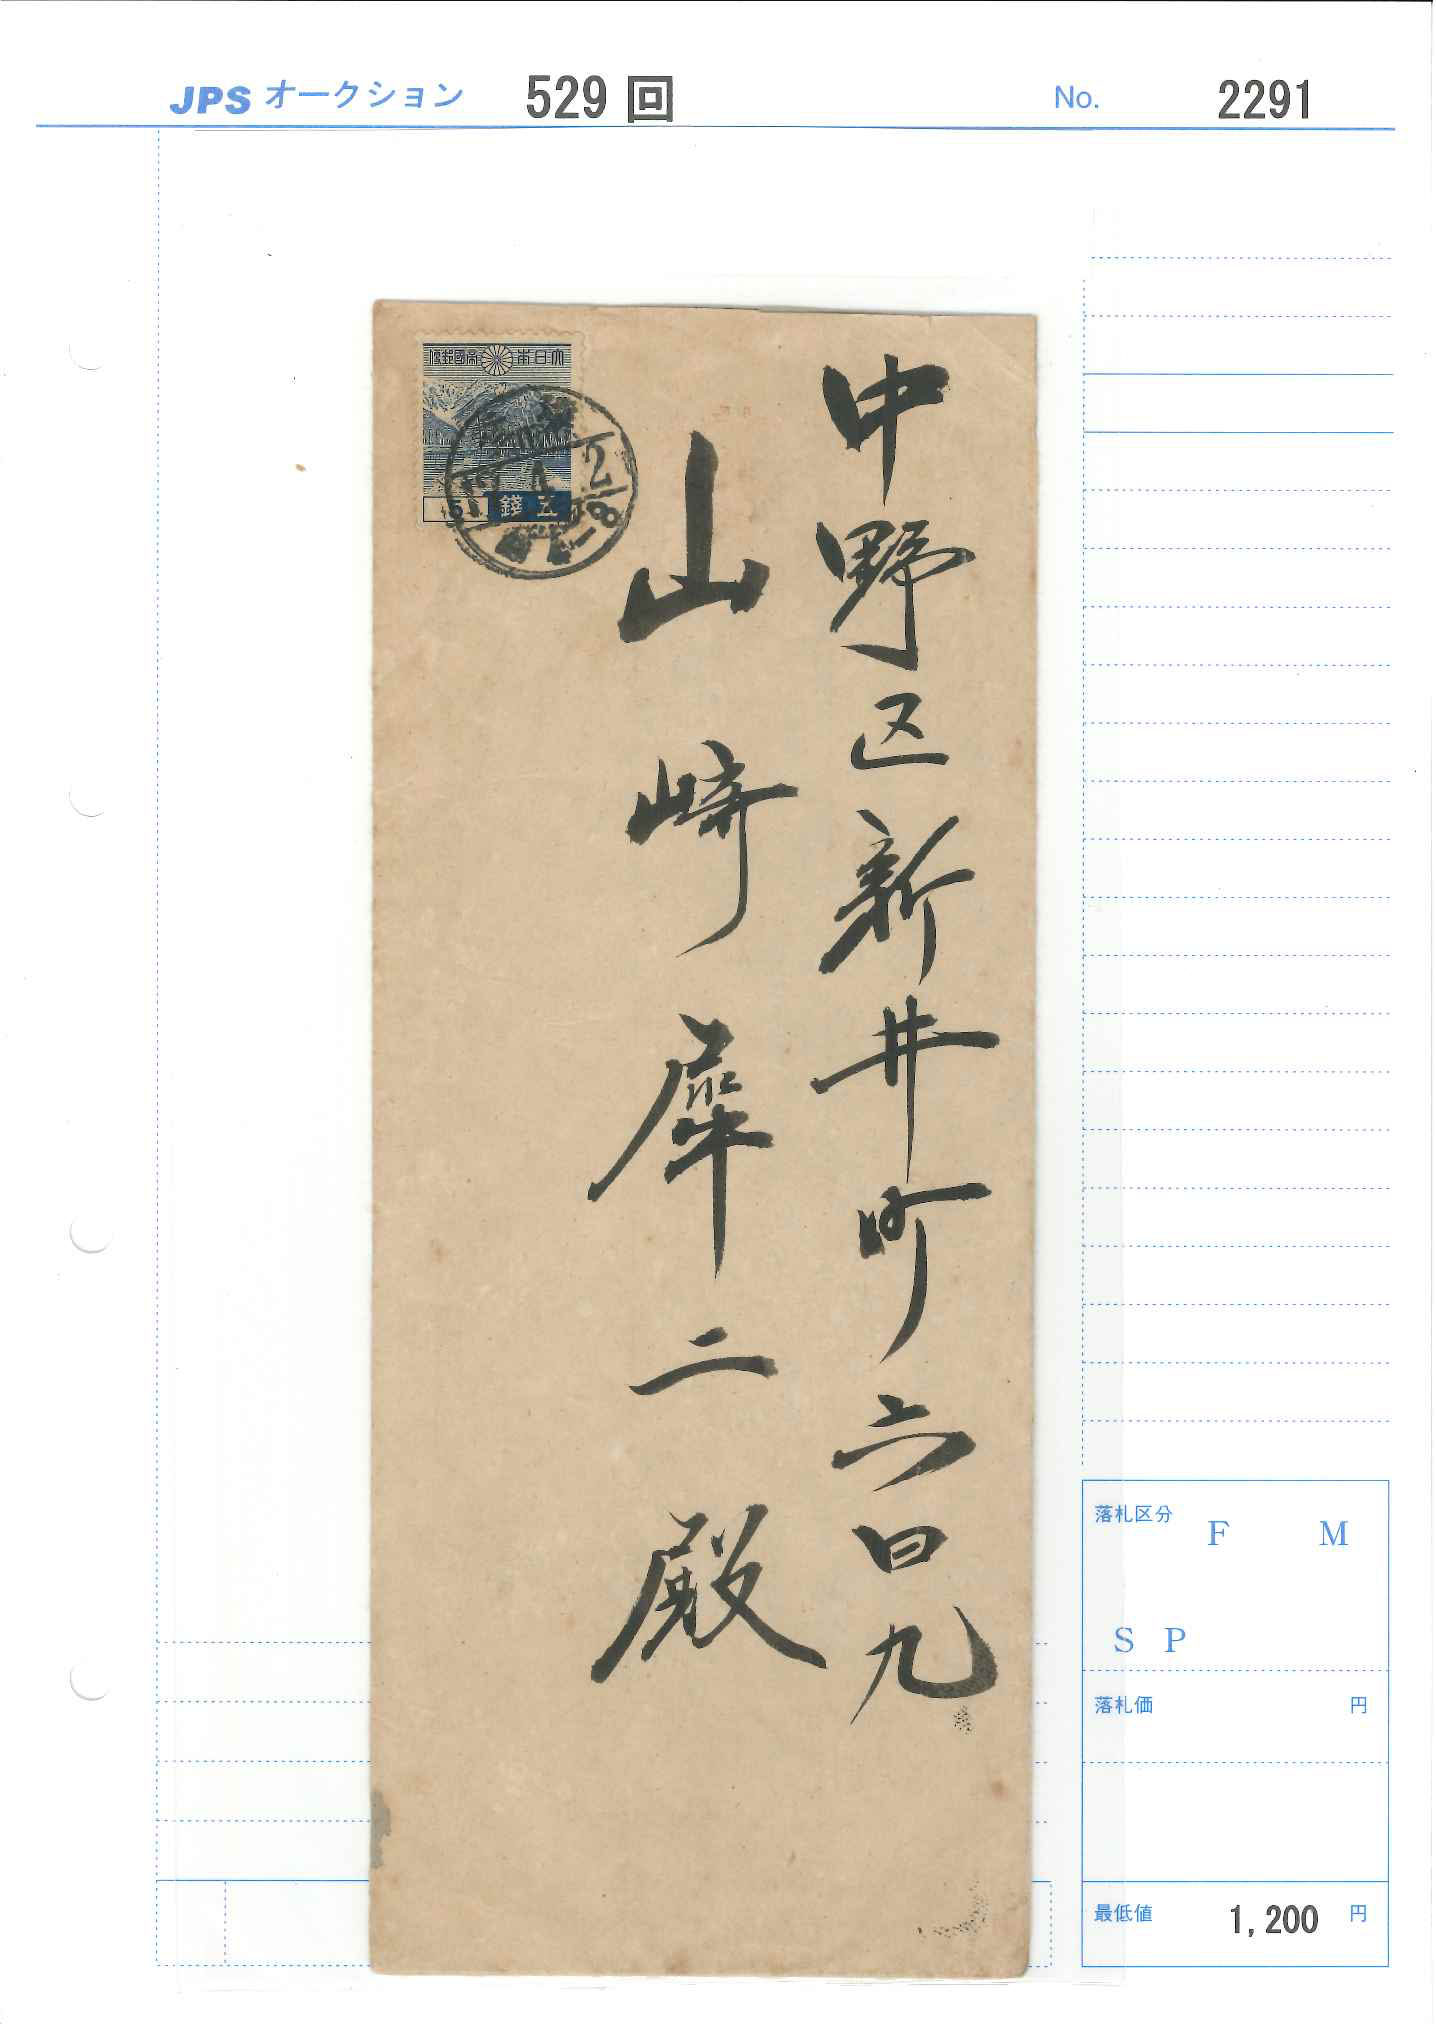 JPS オークション 529 回 No. 2291
便郵國帝 本日大
5 錢五
2
中野区新井町六四九
山崎犀二殿
落札区分
F M
S P
落札価 円
最低値 1,200 円